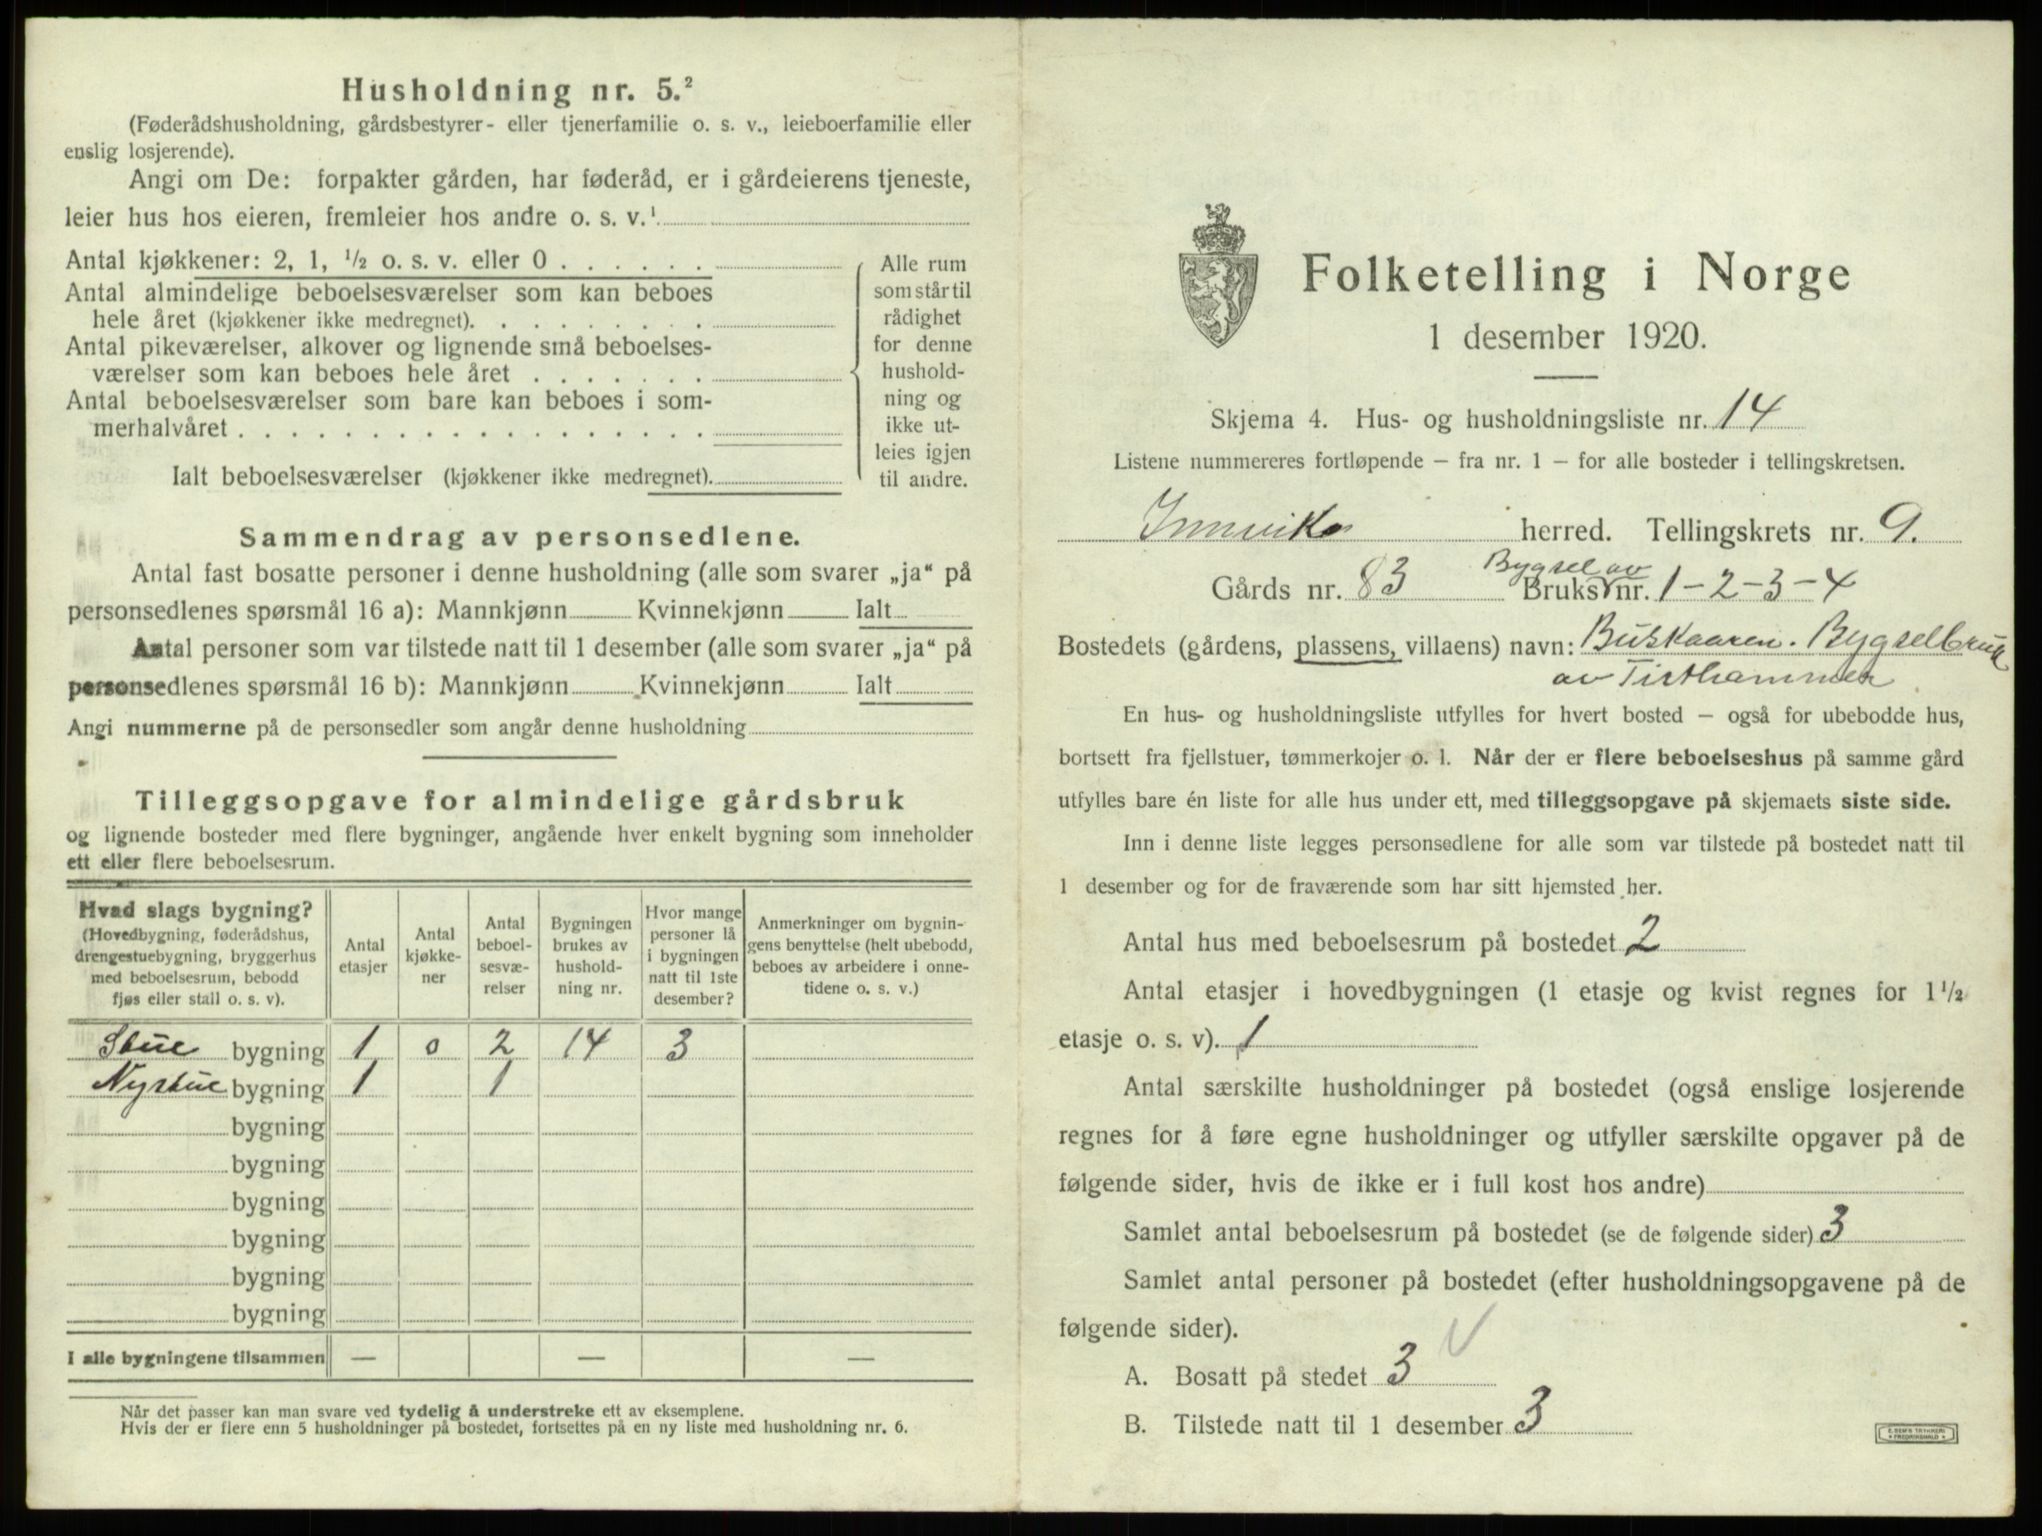 Husholdning nr. 5.²
(Føderådshusholdning, gårdsbestyrer- eller tjenerfamilie o. s. v., leieboerfamilie eller
enslig losjerende).
Angi om De: forpakter gården, har føderåd, er i gårdeierens tjeneste,
leier hus hos eieren, fremleier hos andre o. s. v.¹
Antal kjøkkener: 2, 1, ½ o. s. v. eller 0 . . . . . .
Antal almindelige beboelsesværelser som kan beboes
hele året (kjøkkener ikke medregnet). . . . . . . . .
Antal pikeværelser, alkover og lignende små beboelses-
værelser som kan beboes hele året . . . . . . .
Antal beboelsesværelser som bare kan beboes i som-
merhalvåret . . . . . . . . . . . . . . . . . .
Ialt beboelsesværelser (kjøkkener ikke medregnet).
Alle rum
som står til
rådighet
for denne
hushold-
ning og
ikke ut-
leies igjen
til andre.
Sammendrag av personsedlene.
Antal fast bosatte personer i denne husholdning (alle som svarer „ja“ på
personsedlenes spørsmål 16 a): Mannkjønn Kvinnekjønn Ialt
Antal personer som var tilstede natt til 1 desember (alle som svarer „ja“ på
personsedlenes spørsmål 16 b): Mannkjønn Kvinnekjønn Ialt
Angi nummerne på de personsedler som angår denne husholdning
Tilleggsopgave for almindelige gårdsbruk
og lignende bosteder med flere bygninger, angående hver enkelt bygning som inneholder
ett eller flere beboelsesrum.
Hvad slags bygning?
(Hovedbygning, føderådshus,
drengestuebygning, bryggerhus
med beboelsesrum, bebodd
fjøs eller stall o. s. v).
Antal
etasjer
Antal
kjøkke-
ner
Antal
beboel-
sesvæ-
relser
Bygningen
brukes av
hushold-
ning nr.
Hvor mange
personer lå
i bygningen
natt til 1ste
desember?
Anmerkninger om bygnin-
gens benyttelse (helt ubebodd,
beboes av arbeidere i onne-
tidene o. s. v.)
Stue bygning 1 0 2 14 3
Nystue bygning 1 1
bygning
bygning
bygning
bygning
bygning
bygning
I alle bygningene tilsammen — — —
Når det passer kan man svare ved tydelig å understreke ett av eksemplene.
Hvis der er flere enn 5 husholdninger på bostedet, fortsettes på en ny liste med husholdning nr. 6.
Folketelling i Norge
1 desember 1920.
Skjema 4. Hus- og husholdningsliste nr. 14
Listene nummereres fortløpende – fra nr. 1 – for alle bosteder i tellingskretsen.
Innvik herred. Tellingskrets nr. 9.
Bygsel av
Gårds nr. 83 Bruks nr. 1-2-3-4
Bostedets (gårdens, plassens, villaens) navn: Buskaaren. Bygselbruk
av Tisthammer
En hus- og husholdningsliste utfylles for hvert bosted – også for ubebodde hus,
bortsett fra fjellstuer, tømmerkojer o. l. Når der er flere beboelseshus på samme gård
utfylles bare én liste for alle hus under ett, med tilleggsopgave på skjemaets siste side.
Inn i denne liste legges personsedlene for alle som var tilstede på bostedet natt til
1 desember og for de fraværende som har sitt hjemsted her.
Antal hus med beboelsesrum på bostedet 2
Antal etasjer i hovedbygningen (1 etasje og kvist regnes for 1½
etasje o. s. v). 1
Antal særskilte husholdninger på bostedet (også enslige losjerende
regnes for å føre egne husholdninger og utfyller særskilte opgaver på de
følgende sider, hvis de ikke er i full kost hos andre)
Samlet antal beboelsesrum på bostedet (se de følgende sider) 3
Samlet antal personer på bostedet (efter husholdningsopgavene på de
følgende sider).
A. Bosatt på stedet 3
B. Tilstede natt til 1 desember 3